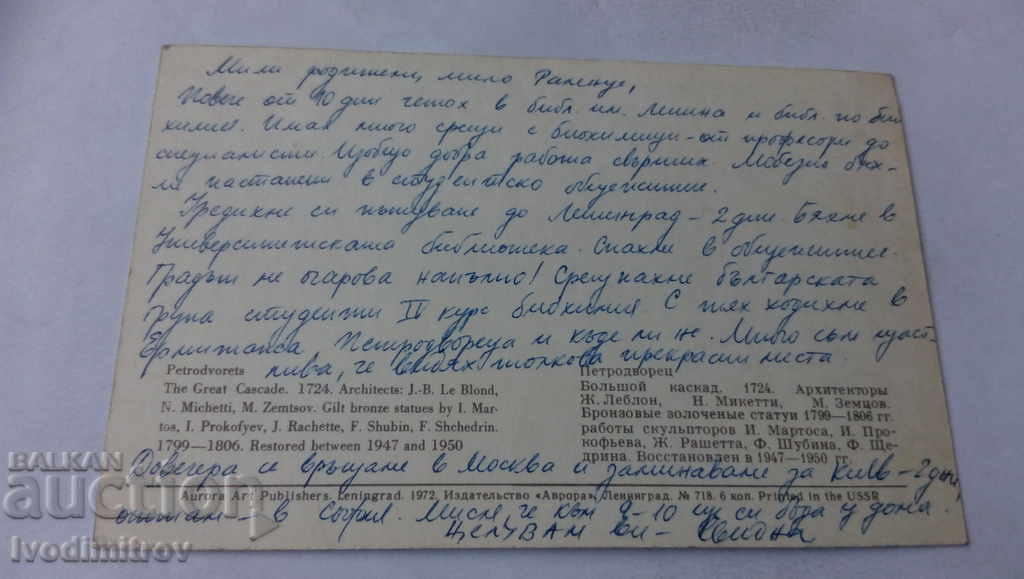 Мили родители, мило
Повече от 10 дни четох в библ. им. Ленина и библ. по био
химия. Имах много срещи с биохимици - от професори до
специалисти. Изобщо добра работа свърших. Бях-
ме настанени в студентско общежитие.
Уредихме си пътуване до Ленинград - 2 дни. Бяхме в
Университетската библиотека. Спахме в общежитие.
Градът ме очарова напълно! Срещнахме българската
група студенти IV курс биохимия С тях ходихме в
Ермитажа Петродвореца и къде ли не. Много съм щаст-
лива, че видях толкова прекрасни места.
Petrodvorets
The Great Cascade. 1724. Architects: J.-B. Le Blond,
N. Michetti, M. Zemtsov. Gilt bronze statues by I. Mar-
tos, I. Prokofyev, J. Rachette, F. Shubin, F. Shchedrin.
1799—1806. Restored between 1947 and 1950
Петродворец
Большой каскад. 1724. Архитекторы
Ж. Леблон, Н. Микетти, М. Земцов.
Бронзовые золоченые статуи 1799—1806 гг.
работы скульпторов И. Мартоса, И. Про-
кофьева, Ж. Рашетта, Ф. Шубина, Ф. Ще-
дрина. Восстановлен в 1947—1950 гг.
Довечера се връщаме в Москва и заминаваме за Киев - 2 дни,
Aurora Art Publishers. Leningrad. 1972. Издательство «Аврора». Ленинград. № 718. 6 коп. Printed in the USSR
оттам - в София. Мисля, че към 9-10 ще си бъда у дома.
ЦЕЛУВАМ ВИ -
BALKAN
auction
Ivodimitrov